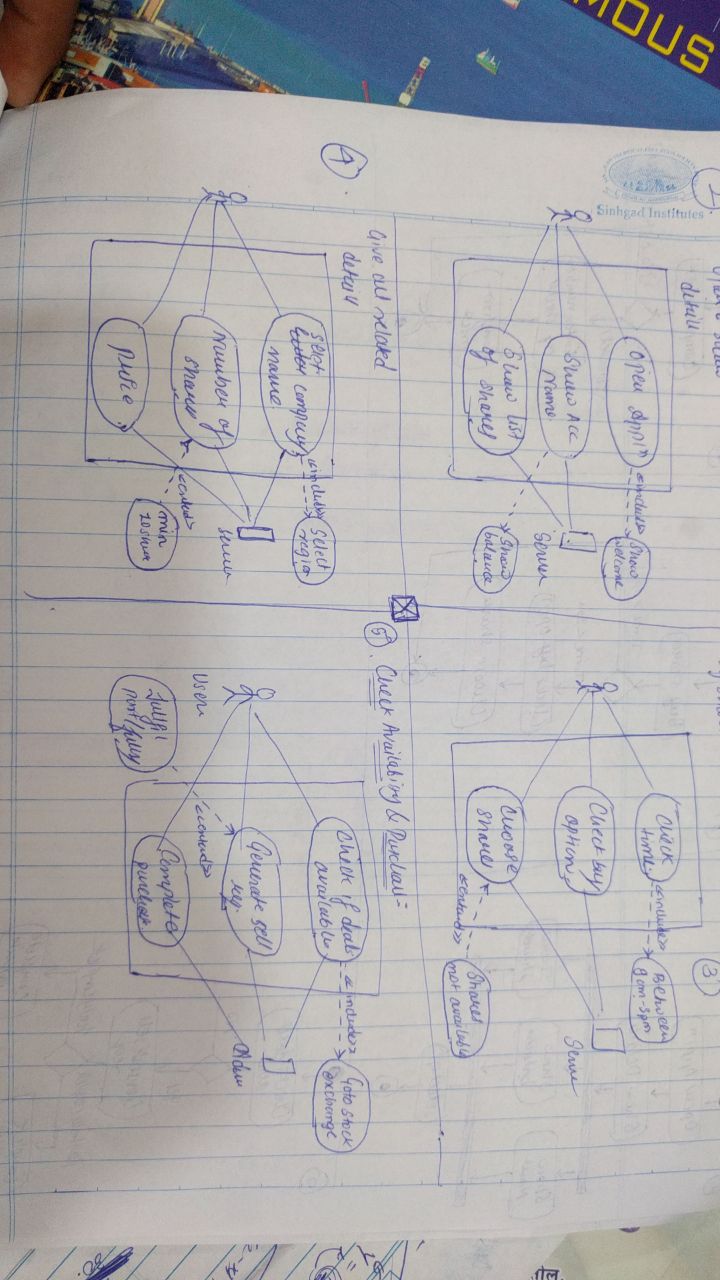 MOUS
Sinhgad Institutes
detail
Open Appln
<<include>>
Show
welcome
Show Acc
Name
Server
Show list
of shares
Show
balance
3
Check
time
<<include>>
Between
9am-3pm
Check buy
option
Server
Choose
shares
<<extend>>
Shares
not available
4
Give all related
detail
Select
company
name
<<include>>
Select
region
Number of
shares
Server
<<extend>>
min
price
5. Check Availability & Purchase:
Check if deals
available
<<include>>
Goto stock
exchange
Generate sell
req.
User
<<extend>>
Admin
Complete
purchase
fullfil
part/fully